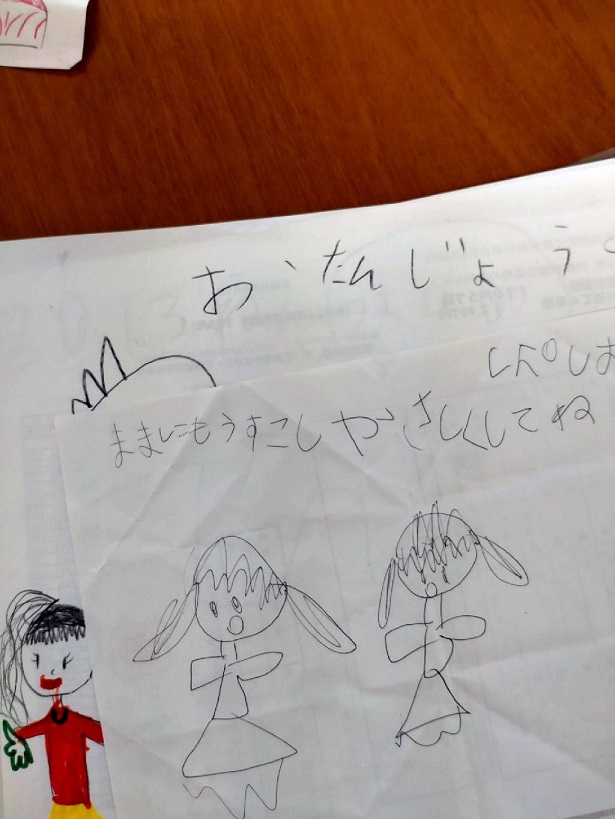 おたんじょう
ままにもうすこしやさしくしてね